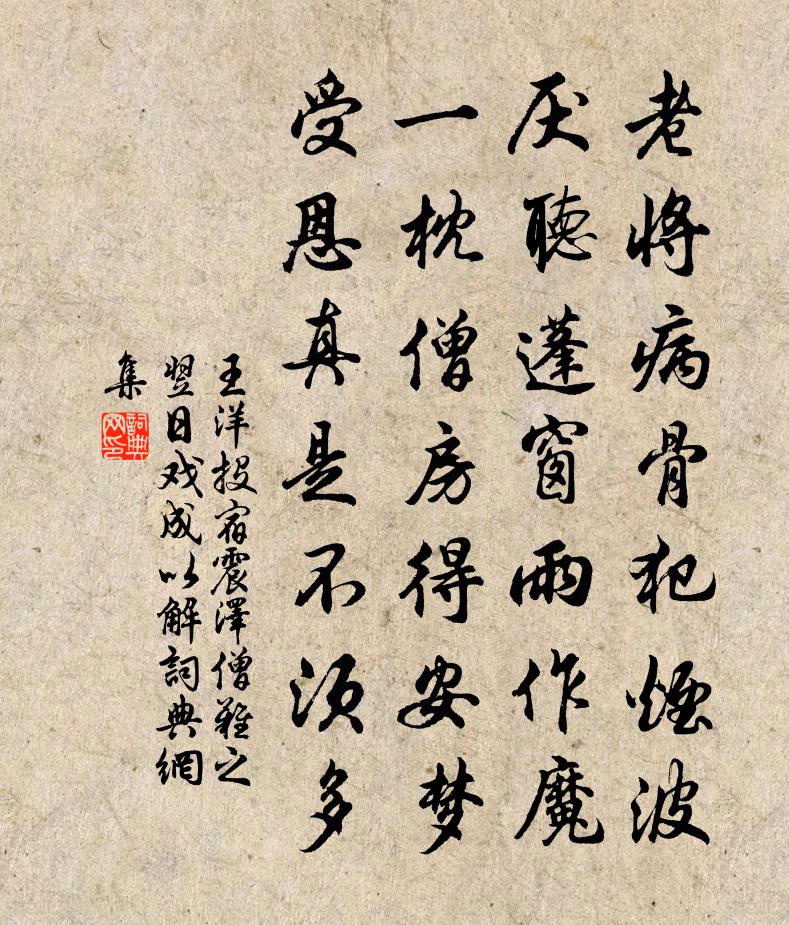 老将病骨犯烟波
厌聽蓬窗雨作魔
一枕僧房得安梦
受恩真是不须多
王洋投宿震澤僧難之
翌日戏成以解詞典網
集
詞典
网印